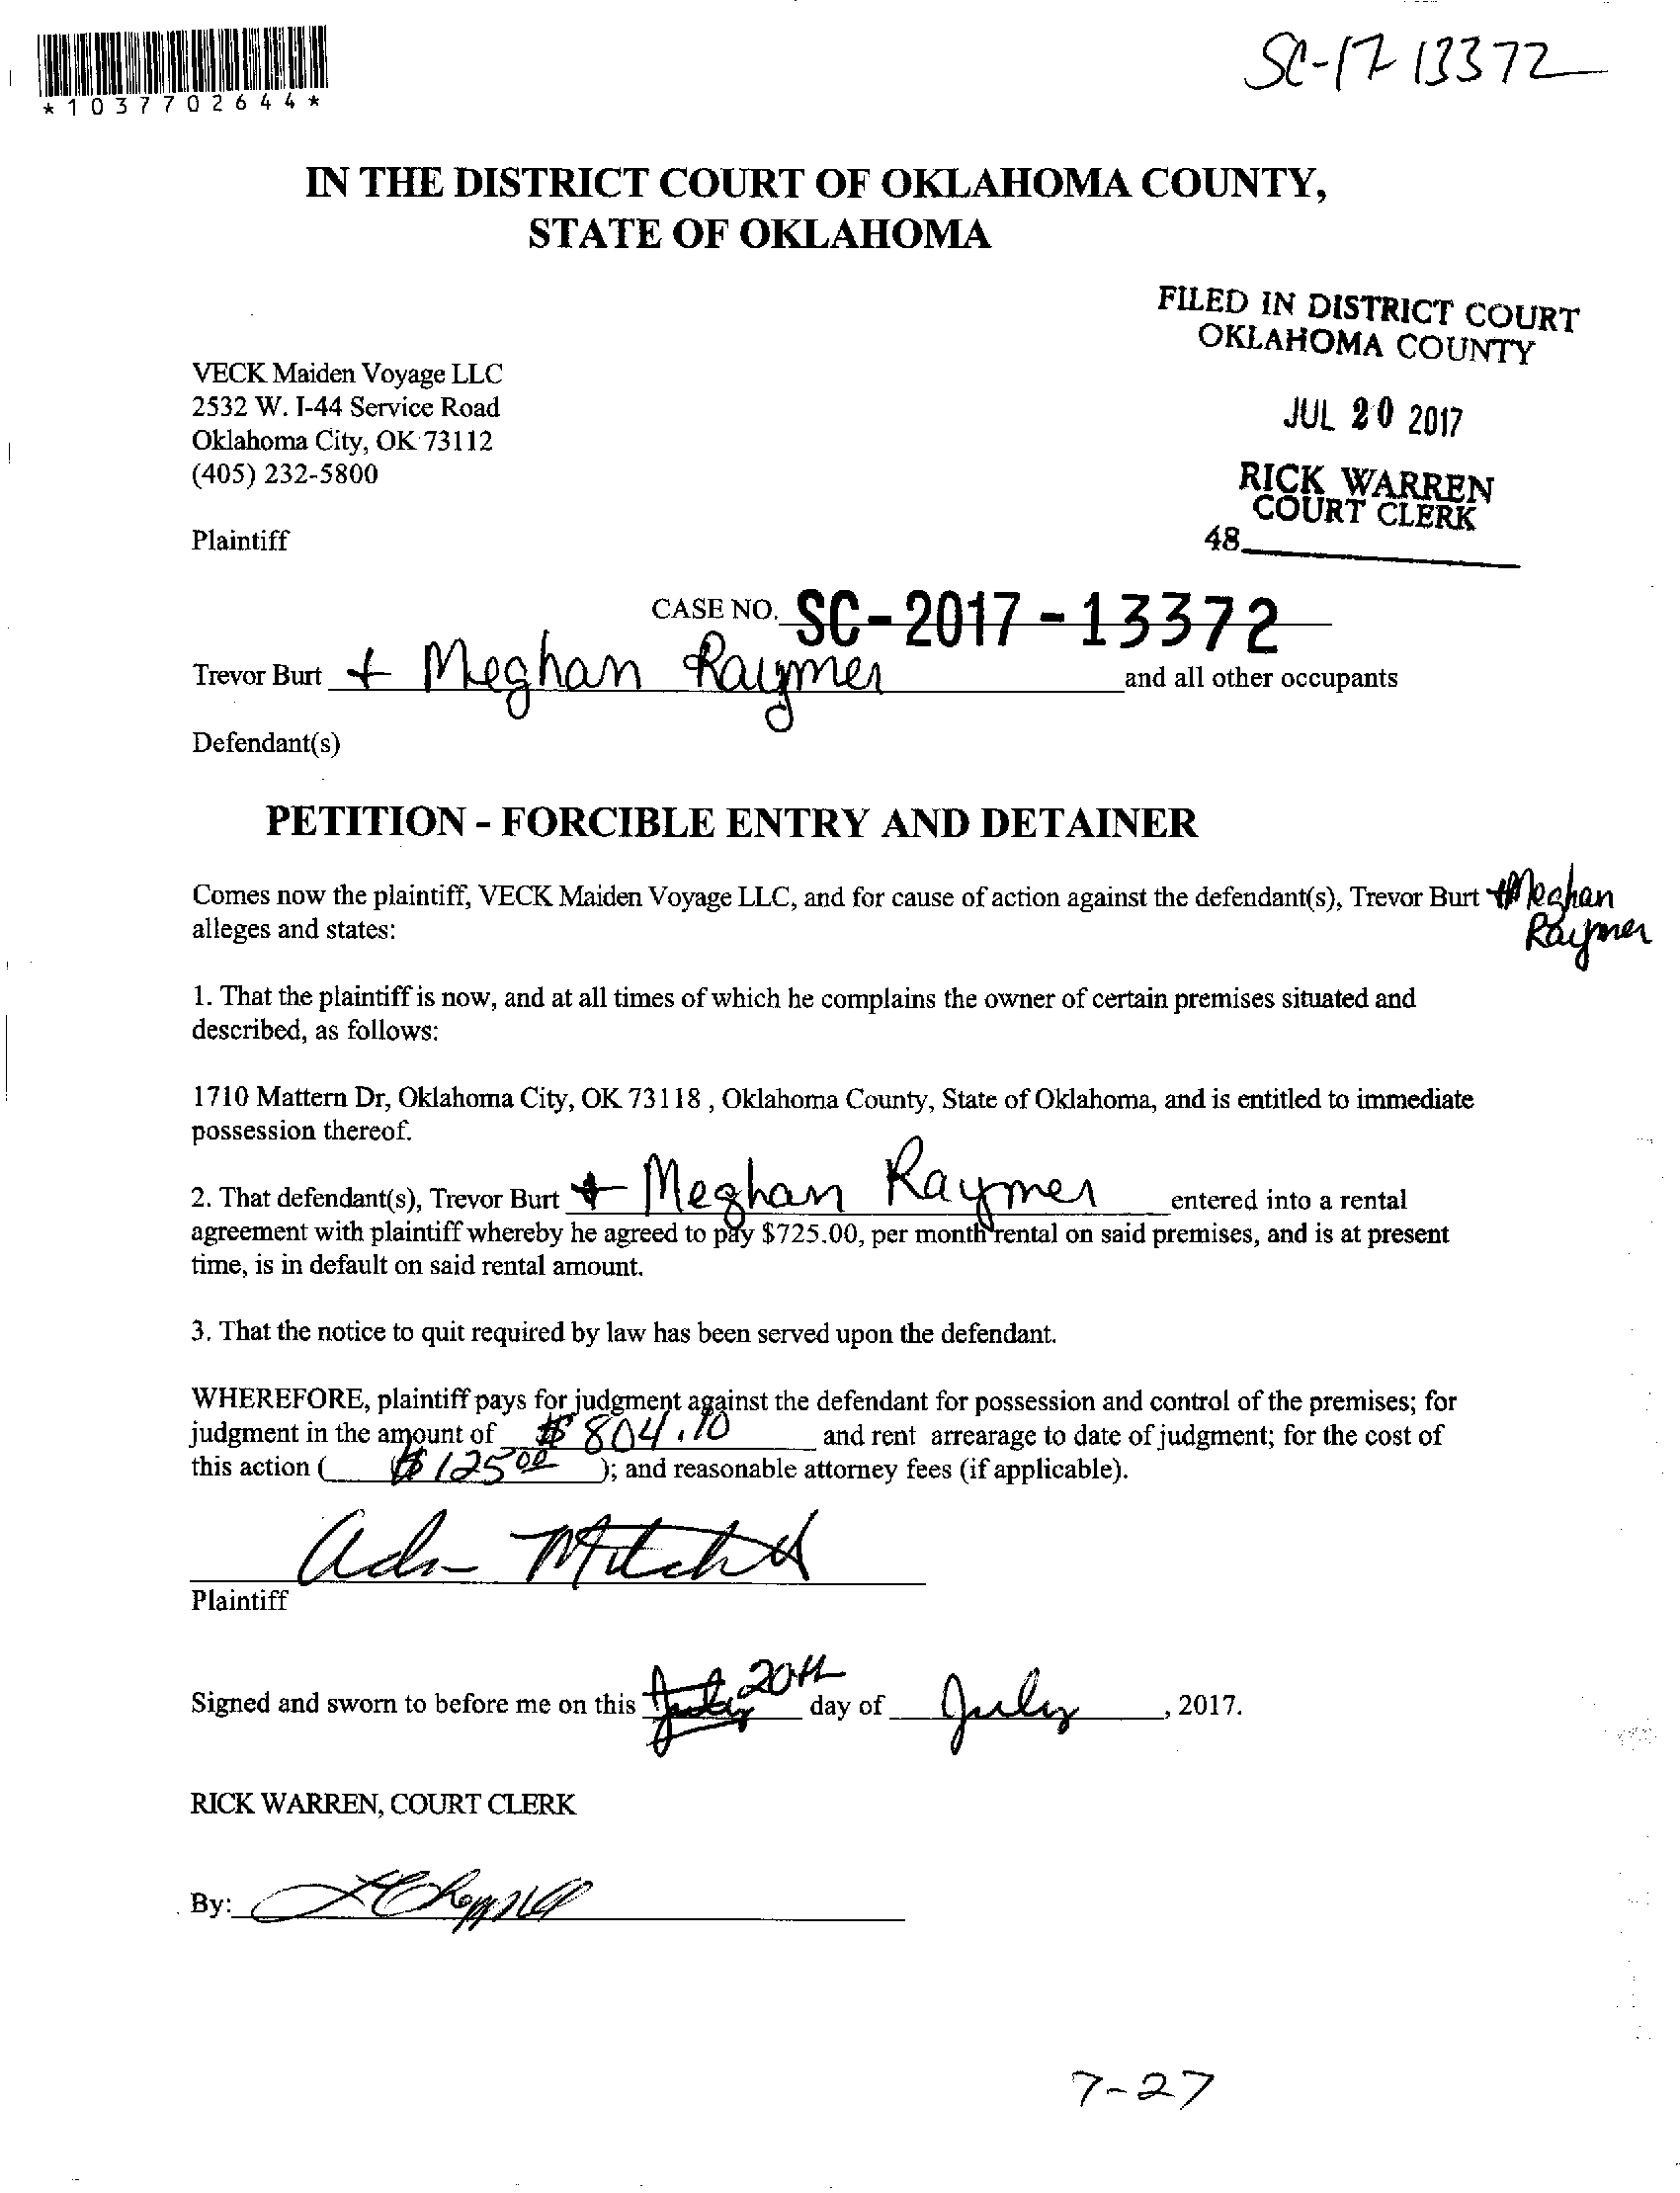 *1037702644*
SC-17 13372
IN THE DISTRICT COURT OF OKLAHOMA COUNTY,
STATE OF OKLAHOMA
FILED IN DISTRICT COURT
OKLAHOMA COUNTY
JUL 20 2017
RICK WARREN
COURT CLERK
48
VECK Maiden Voyage LLC
2532 W. I-44 Service Road
Oklahoma City, OK 73112
(405) 232-5800
Plaintiff
CASE NO. SC-2017-13372
Trevor Burt + Meghan Raymer and all other occupants
Defendant(s)
PETITION - FORCIBLE ENTRY AND DETAINER
Comes now the plaintiff, VECK Maiden Voyage LLC, and for cause of action against the defendant(s), Trevor Burt + Meghan
Raymer
alleges and states:
1. That the plaintiff is now, and at all times of which he complains the owner of certain premises situated and
described, as follows:
1710 Mattern Dr, Oklahoma City, OK 73118 , Oklahoma County, State of Oklahoma, and is entitled to immediate
possession thereof.
2. That defendant(s), Trevor Burt + Meghan Raymer entered into a rental
agreement with plaintiff whereby he agreed to pay $725.00, per month rental on said premises, and is at present
time, is in default on said rental amount.
3. That the notice to quit required by law has been served upon the defendant.
WHEREFORE, plaintiff pays for judgment against the defendant for possession and control of the premises; for
judgment in the amount of $804.10 and rent arrearage to date of judgment; for the cost of
this action ( $125.00 ); and reasonable attorney fees (if applicable).
Plaintiff
Signed and sworn to before me on this 20th day of July, 2017.
RICK WARREN, COURT CLERK
By:
7-27